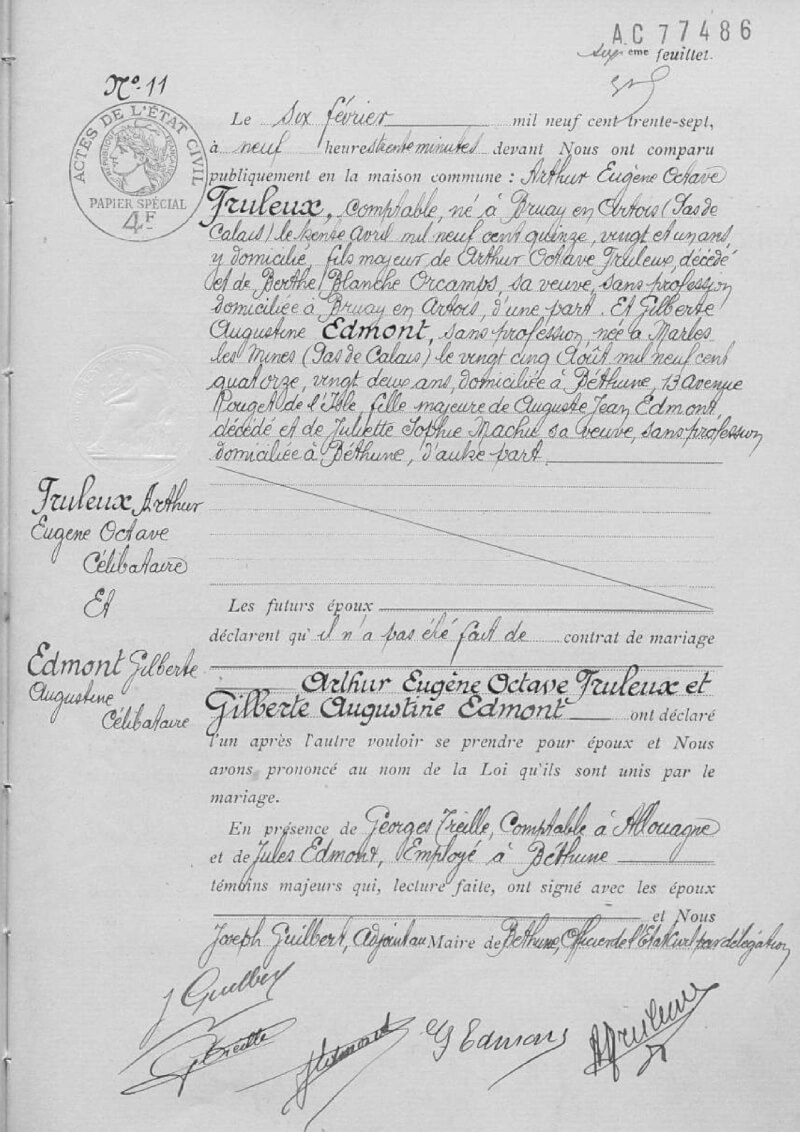 AC 77486
Sixième feuillet.
N° 11
ACTES DE L'ÉTAT CIVIL
RÉPUBLIQUE FRANÇAISE
PAPIER SPÉCIAL
4F
Le six février mil neuf cent trente-sept,
à neuf heures trente minutes devant Nous ont comparu
publiquement en la maison commune : Arthur Eugène Octave
Truleux, Comptable, né à Bruay en Artois (Pas de
Calais) le treize Avril mil neuf cent quinze, vingt et un ans,
y domicilié, fils majeur de Arthur Octave Truleux, décédé
et de Berthe Blanche Orcamps, sa veuve, sans profession
domiciliée à Bruay en Artois, d'une part. Et Gilberte
Augustine Edmont, sans profession, née à Marles
les Mines (Pas de Calais) le vingt cinq Août mil neuf cent
quatorze, vingt deux ans, domiciliée à Béthune, 13 Avenue
Rouget de l'Isle, fille majeure de Auguste Jean Edmont,
décédé et de Juliette Sophie Machu sa veuve, sans profession
domiciliée à Béthune, d'autre part.
Truleux Arthur
Eugène Octave
Célibataire
Et
Edmont Gilberte
Augustine
Célibataire
Les futurs époux
déclarent qu'il n'a pas été fait de contrat de mariage
Arthur Eugène Octave Truleux et
Gilberte Augustine Edmont ont déclaré
l'un après l'autre vouloir se prendre pour époux et Nous
avons prononcé au nom de la Loi qu'ils sont unis par le
mariage.
En présence de Georges Treille, Comptable à Allouagne
et de Jules Edmont, Employé à Béthune
témoins majeurs qui, lecture faite, ont signé avec les époux
et Nous
Joseph Guilbert, Adjoint au Maire de Béthune, Officier de l'Etat Civil par délégation
J Guilbert
G Treille
J Edmont
G Edmont
A Truleux